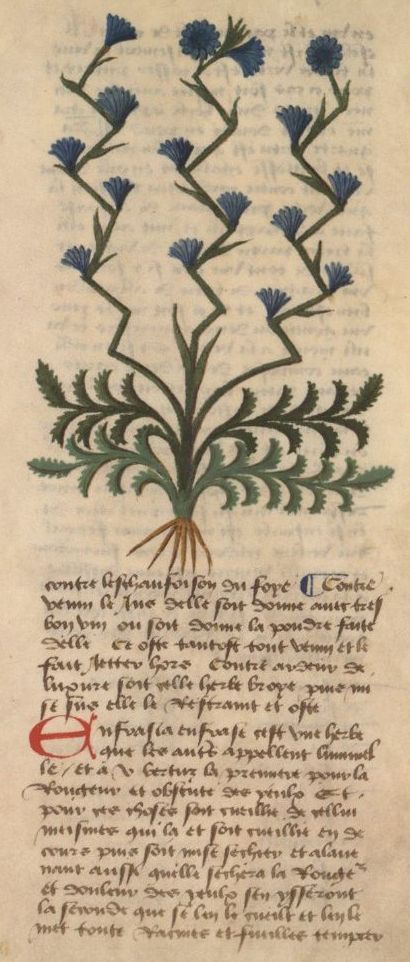 contre leschaufoison du foye ¶ Contre
venin le Jus delle soit donne avec tres
bon vin ou soit donne la pouldre faite
delle Ce oste tantost tout venin et le
fait Jetter hors Contre ardeur de
luxure soit celle herbe broye puis mi
se sus elle le Restraint et oste
Enfrasia enfrase cest une herbe
que les autres appellent luminel
le / et a v vertuz la premiere pour la
Rougeur et obscurte des yeulx Et
pour ces choses soit cueillie de cellui
meismes qui la et soit cueillie en de
cours puis soit mise sechier et alave
nant aussi quelle sechera la Rouge
et douleur des yeulx sen ysseront
la seconde que se len le cueilt et len le
met toute Racines et fueilles temprer